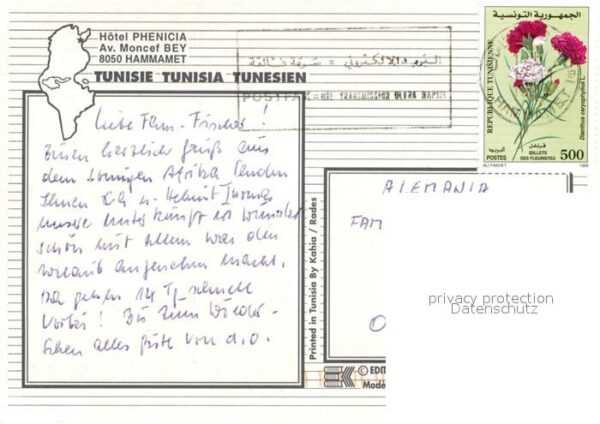 Hôtel PHENICIA
Av. Moncef BEY
8050 HAMMAMET
TUNISIE TUNISIA TUNESIEN
الجمهورية التونسية
REPUBLIQUE TUNISIENNE
Dianthus caryophyllus L.
قرنفل
البريد
POSTES
OEILLETS
DES FLEURISTES
500
ALI FAKHET
البريد الإلكتروني =
= UNE TRANSMISSION ULTRA RAPIDE
Liebe Fam. Fischer!
Einen herzlichen Gruß aus
dem sonnigen Afrika senden
Ihnen u. Helmut
unsere Unterkunft ist wunder
schön mit allem was den
Urlaub angenehm macht.
Da gehen 14 Tg. schnell
vorbei! Bis zum Wieder-
sehen alles gute von d. O.
Printed in Tunisia By Kahia / Rades
ALEMANIA
FAM
O
© EDIT
Mode
privacy protection
Datenschutz